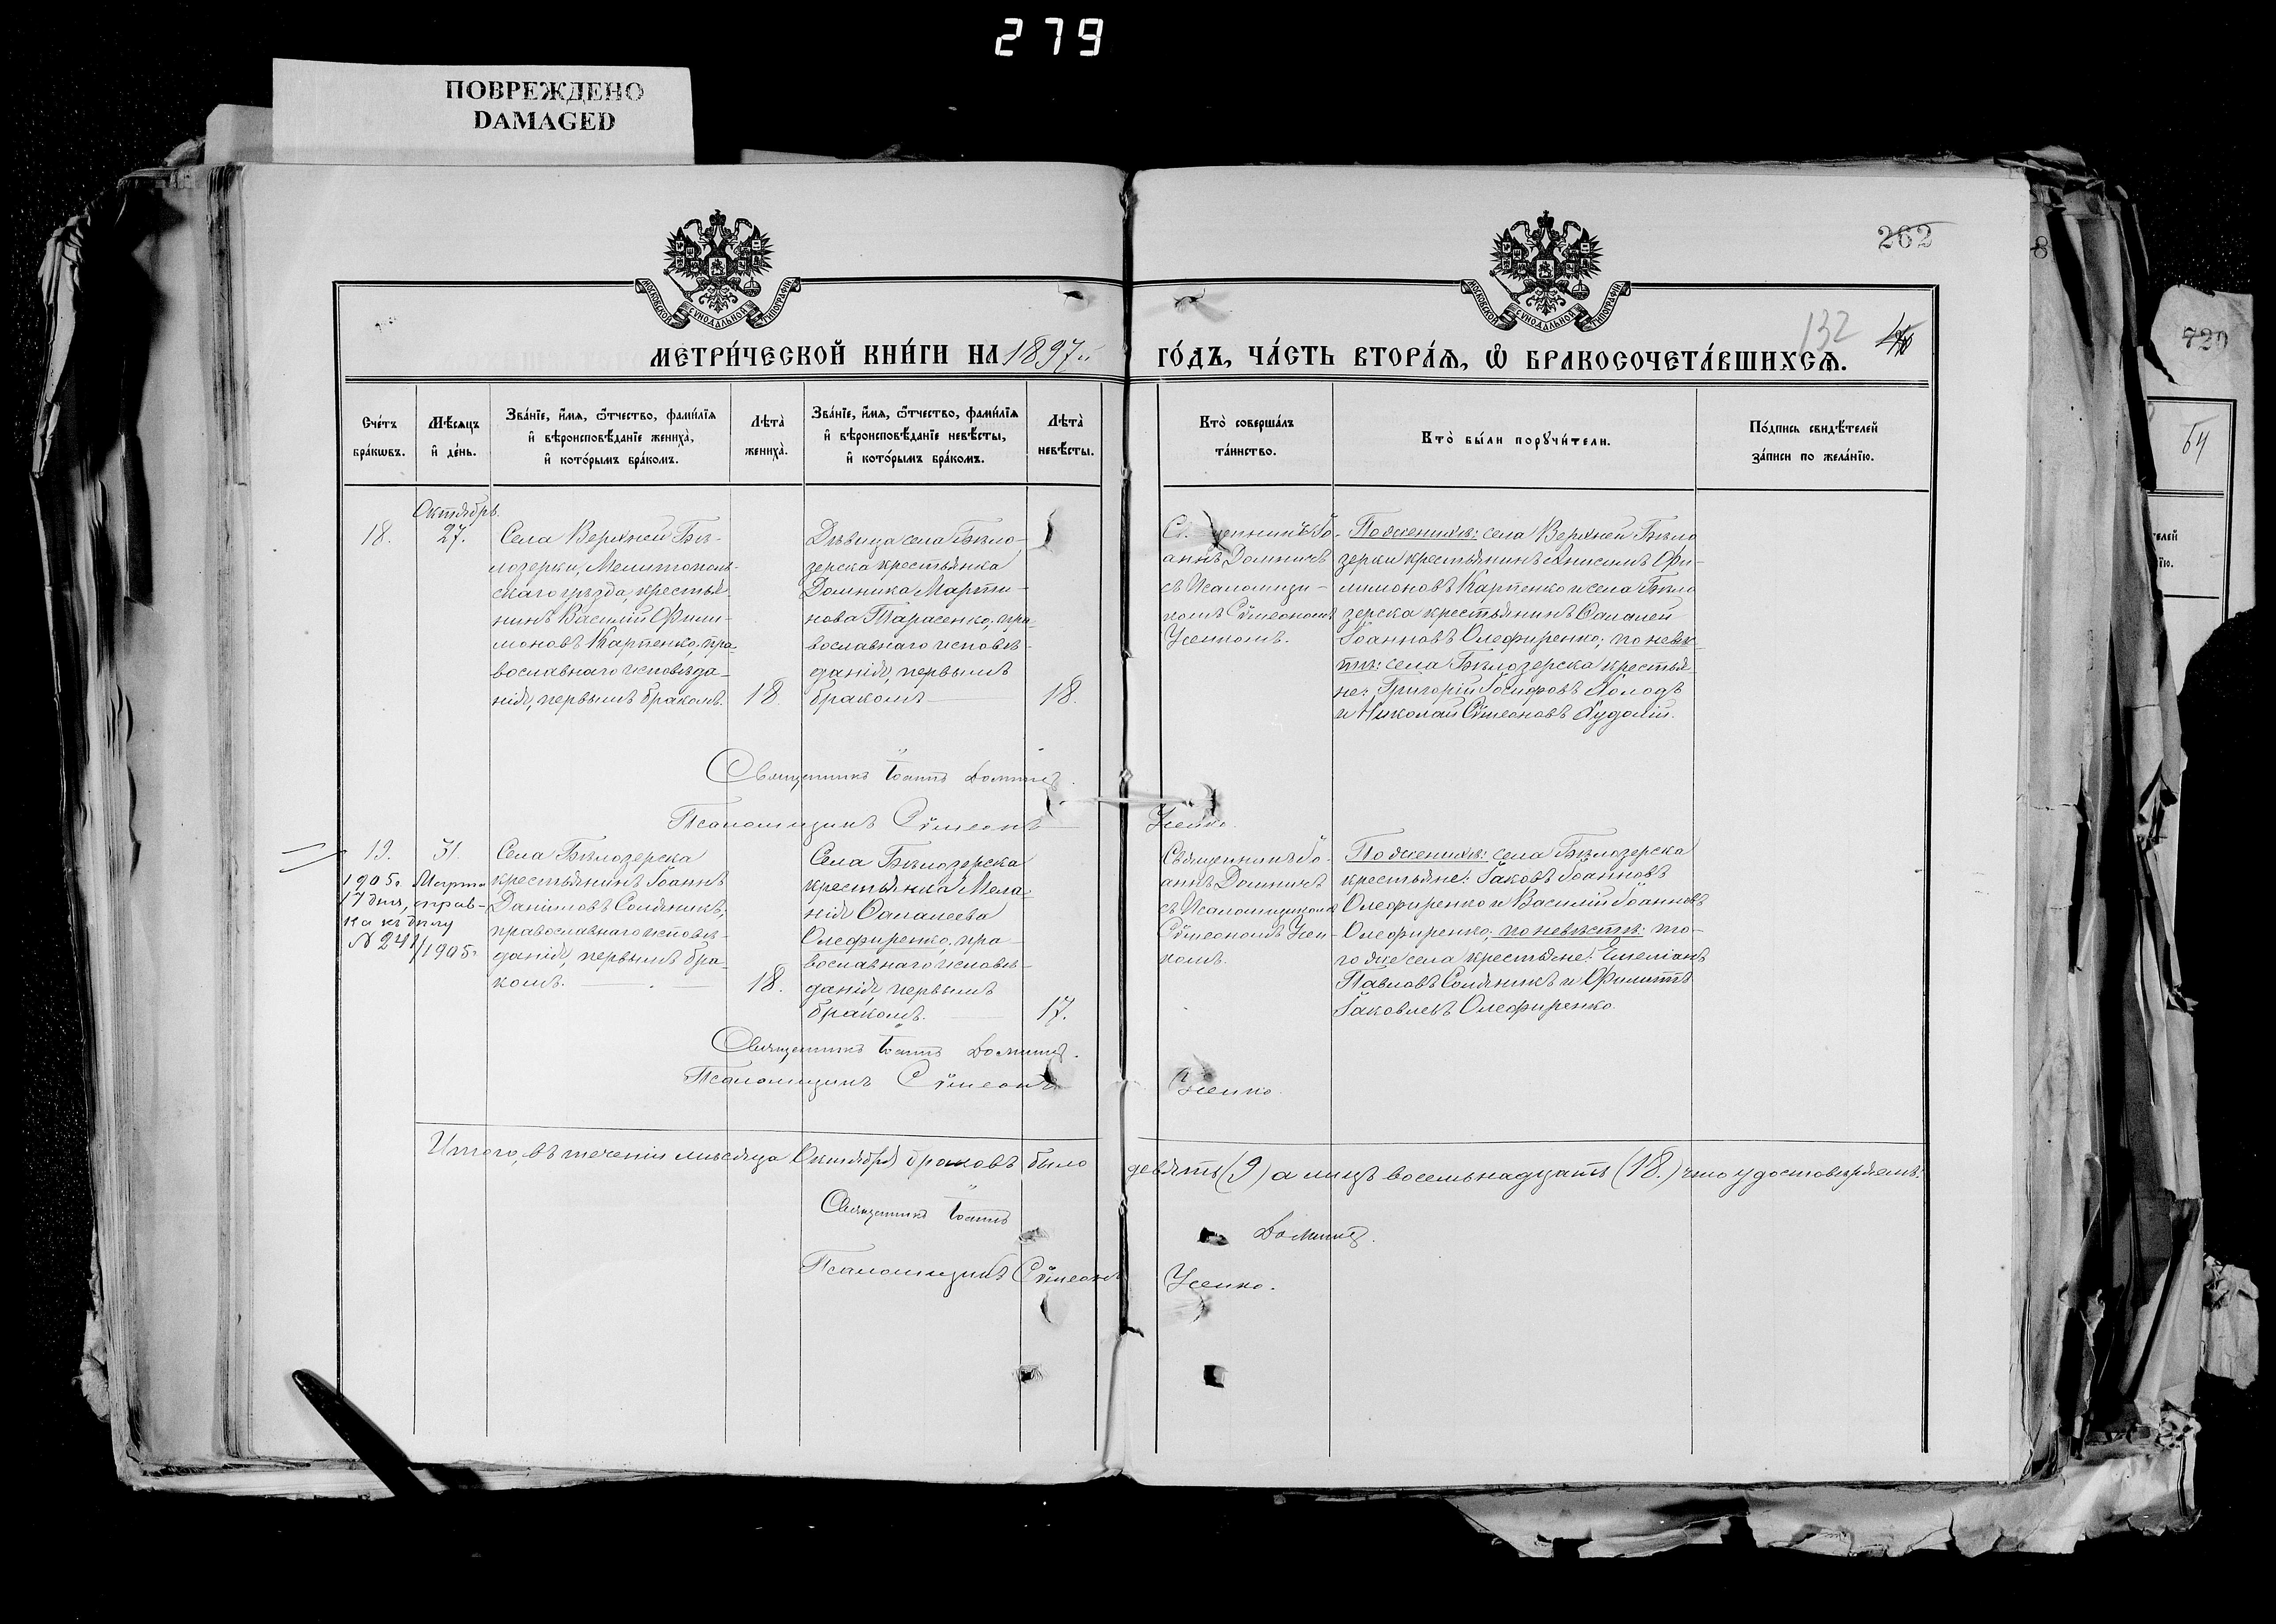 279
ПОВРЕЖДЕНО
DAMAGED
262
8
720
132
64
МОСКОВСКОЙ СѴНОДАЛЬНОЙ ТИПОГРАФІИ
МОСКОВСКОЙ СѴНОДАЛЬНОЙ ТИПОГРАФІИ
МЕТРИ́ЧЕСКОЙ КНИ́ГИ НА 1897й
ГО́ДЪ, ЧА́СТЬ ВТОРА́Я, Ѡ БРАКОСОЧЕТА́ВШИХСЯ.
Сче́тъ бра́кѡвъ.
Мѣ́сяцъ и́ де́нь.
Зва́нїе, и́мя, ѻ́тчество, фами́лїя
и́ вѣроисповѣ́данїе жениха̀,
и́ кото́рымъ бра́комъ.
Лѣта̀ жениха̀.
Зва́нїе, и́мя, ѻ́тчество, фами́лїя
и́ вѣроисповѣ́данїе невѣ́сты,
и́ кото́рымъ бра́комъ.
Лѣта̀ невѣ́сты.
Кто̀ соверша́лъ та́инство.
Кто̀ бы́ли порꙋчи́тели.
По́дпись свидѣ́телей за́писи по жела́нїю.
18.
Октябрь.
27.
Села Верхней Бѣ-
лозерки, Мелитополь-
скаго уѣзда, крестья-
нинъ Василій Фили-
моновъ Карпенко, пра-
вославнаго исповѣда-
нія, первымъ бракомъ.
18
Дѣвица села Бѣло-
зерска крестьянка
Домника Марти-
нова Тарасенко, пра-
вославнаго исповѣ-
данія, первымъ
бракомъ
18.
Священникъ Іо-
аннъ Домничъ
съ Псаломщи-
комъ Сѵмеономъ
Усенкомъ.
По женихѣ: села Верхней Бѣло
зерки крестьянинъ Анисимъ Фи-
лимоновъ Карпенко и села Бѣло
зерска крестьянинъ Фалалей
Іоанновъ Олефиренко; по невѣ-
стѣ: села Бѣлозерска крестья
не: Григорій Іосифовъ Холодъ
и Николай Сѵмеоновъ
Священникъ Іоаннъ Домничъ.
Псаломщикъ Сѵмеонъ Усенко.
19.
31.
1905г. Марта
17 дня, справ-
ка къ дѣлу
№ 241/1905г
Села Бѣлозерска
крестьянинъ Іоаннъ
Даніиловъ Соляникъ,
православнаго исповѣ-
данія, первымъ бра-
комъ.
18.
Села Бѣлозерска
крестьянка Мела-
нія Фалалеева
Олефиренко, пра-
вославнаго исповѣ-
данія, первымъ
бракомъ.
17.
Священникъ Іо-
аннъ Домничъ
съ Псаломщикомъ
Сѵмеономъ Усен-
комъ.
По женихѣ: села Бѣлозерска
крестьяне: Іаковъ Іоанновъ
Олефиренко и Василій Іоанновъ
Олефиренко; по невѣстѣ: то-
го же села крестьяне: Емеліанъ
Павловъ Соляникъ и Филиппъ
Іаковлевъ Олефиренко.
Священникъ Іоаннъ Домничъ.
Псаломщикъ Сѵмеонъ Усенко.
Итого, въ теченіи мѣсяца Октября браковъ было девять (9) а лицъ восемьнадцать (18.) что удостовѣряемъ:
Священникъ Іоаннъ Домничъ.
Псаломщикъ Сѵмеонъ Усенко.